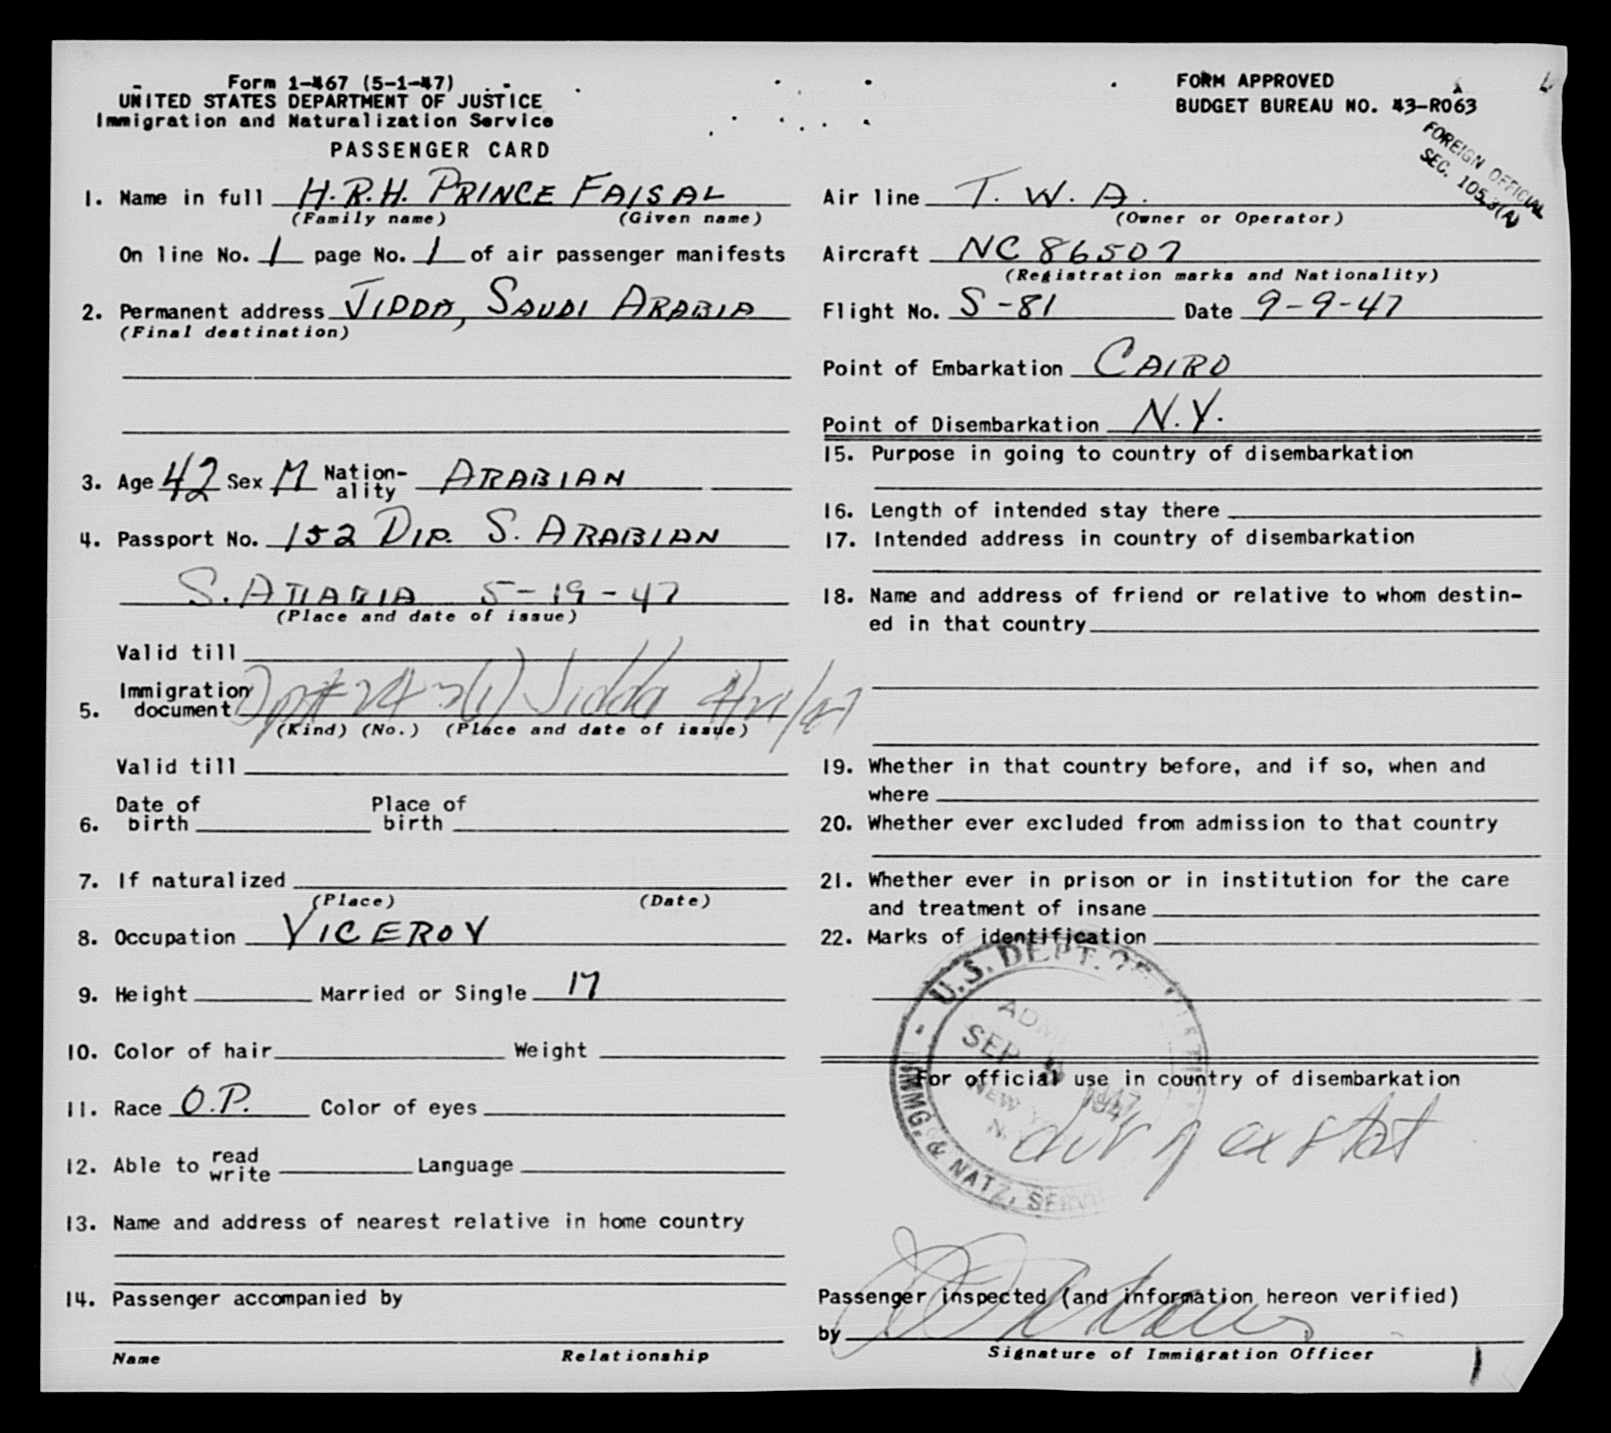 Form I-467 (5-1-47)
UNITED STATES DEPARTMENT OF JUSTICE
Immigration and Naturalization Service
PASSENGER CARD
FORM APPROVED
BUDGET BUREAU NO. 43-R063
FOREIGN OFFICIAL
SEC. 105.3(A)
1. Name in full H.R.H. PRINCE FAISAL
(Family name) (Given name)
On line No. 1 page No. 1 of air passenger manifests
2. Permanent address JIDDA, SAUDI ARABIA
(Final destination)
3. Age 42 Sex M Nation-
ality ARABIAN
4. Passport No. 152 DIP. S. ARABIAN
S. ARABIA 5-19-47
(Place and date of issue)
Valid till
5. Immigration
document Jidda
(Kind) (No.) (Place and date of issue)
Valid till
6. Date of birth Place of birth
7. If naturalized
(Place) (Date)
8. Occupation VICEROY
9. Height Married or Single M
10. Color of hair Weight
11. Race O.P. Color of eyes
12. Able to read write Language
13. Name and address of nearest relative in home country
14. Passenger accompanied by
Name Relationship
Air line T. W. A.
(Owner or Operator)
Aircraft NC 86507
(Registration marks and Nationality)
Flight No. S-81 Date 9-9-47
Point of Embarkation CAIRO
Point of Disembarkation N.Y.
15. Purpose in going to country of disembarkation
16. Length of intended stay there
17. Intended address in country of disembarkation
18. Name and address of friend or relative to whom destin-
ed in that country
19. Whether in that country before, and if so, when and
where
20. Whether ever excluded from admission to that country
21. Whether ever in prison or in institution for the care
and treatment of insane
22. Marks of identification
U.S. DEPT. OF
SEP 1947
NEW
IMMIG. & NATZ. SERV
For official use in country of disembarkation
Passenger inspected (and information hereon verified)
by
Signature of Immigration Officer